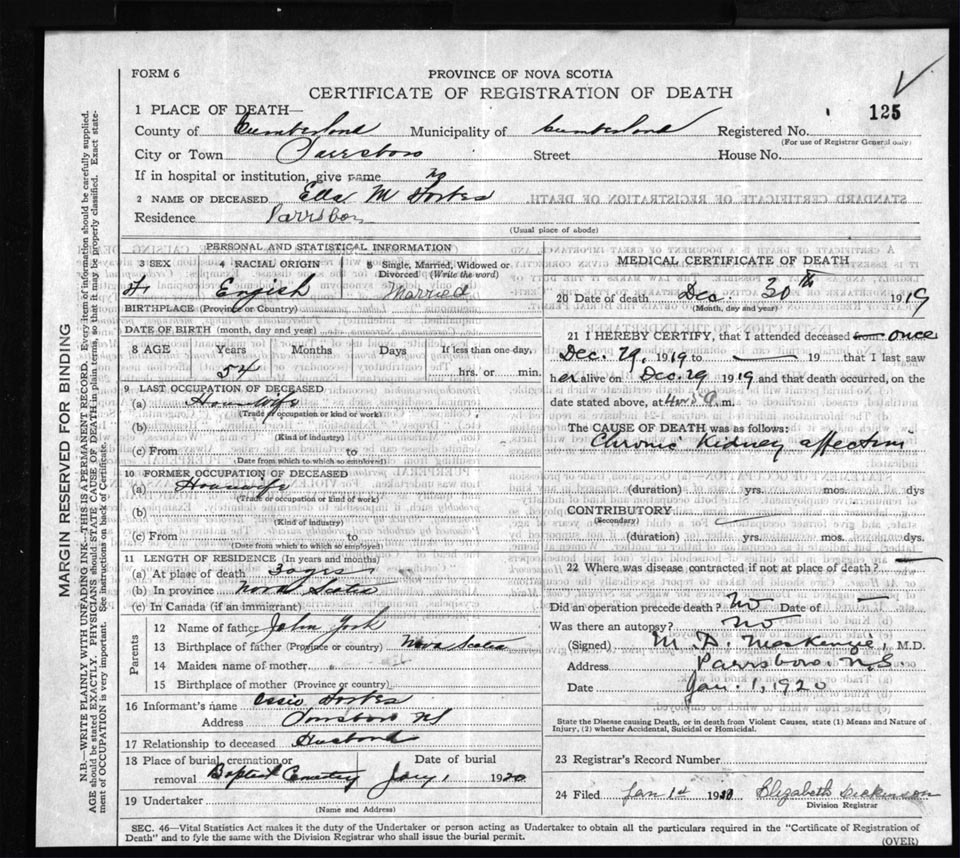 FORM 6
PROVINCE OF NOVA SCOTIA
CERTIFICATE OF REGISTRATION OF DEATH
125
1 PLACE OF DEATH—
County of Cumberland Municipality of Cumberland Registered No.
(For use of Registrar General only)
City or Town Parrsboro Street House No.
If in hospital or institution, give name no
2 NAME OF DECEASED Ella M
Residence Parrsboro
(Usual place of abode)
PERSONAL AND STATISTICAL INFORMATION
3 SEX 4 RACIAL ORIGIN 5 Single, Married, Widowed or Divorced (Write the word)
F English Married
BIRTHPLACE (Province or Country)
DATE OF BIRTH (month, day and year)
8 AGE Years Months Days If less than one-day,
54 hrs. or min.
9 LAST OCCUPATION OF DECEASED
(a) Housewife
(Trade or occupation or kind of work)
(b)
(Kind of industry)
(c) From to
(Date from which to which so employed)
10 FORMER OCCUPATION OF DECEASED
(a) Housewife
(Trade or occupation or kind of work)
(b)
(Kind of industry)
(c) From to
(Date from which to which so employed)
11 LENGTH OF RESIDENCE (In years and months)
(a) At place of death
(b) In province Nova Scotia
(c) In Canada (if an immigrant)
Parents
12 Name of father John York
13 Birthplace of father (Province or country) Nova Scotia
14 Maiden name of mother
15 Birthplace of mother (Province or country)
16 Informant's name
Address Parrsboro NS
17 Relationship to deceased Husband
18 Place of burial, cremation or Date of burial
removal Baptist Cemetery Jany 1 1920
19 Undertaker
(Name and Address)
MEDICAL CERTIFICATE OF DEATH
20 Date of death Dec. 30th 1919
(Month, day and year)
21 I HEREBY CERTIFY, that I attended deceased from once
Dec. 29, 1919 to — 19 that I last saw
her alive on Dec. 29 1919 and that death occurred, on the
date stated above, at m.
The CAUSE OF DEATH was as follows:
Chronic Kidney affection
(duration) yrs. mos. dys
CONTRIBUTORY
(Secondary)
(duration) yrs. mos. dys.
22 Where was disease contracted if not at place of death? —
Did an operation precede death? No Date of —
Was there an autopsy? No
(Signed) M. D. MacKenzie, M.D.
Address Parrsboro N.S.
Date Jan. 1, 1920
State the Disease causing Death, or in death from Violent Causes, state (1) Means and Nature of
Injury, (2) whether Accidental, Suicidal or Homicidal.
23 Registrar's Record Number
24 Filed Jan 1st 1920 Elizabeth Dickinson
Division Registrar
SEC. 46—Vital Statistics Act makes it the duty of the Undertaker or person acting as Undertaker to obtain all the particulars required in the "Certificate of Registration of
Death" and to fyle the same with the Division Registrar who shall issue the burial permit.
(OVER)
MARGIN RESERVED FOR BINDING
N.B.—WRITE PLAINLY WITH UNFADING INK—THIS IS A PERMANENT RECORD. Every item of information should be carefully supplied.
AGE should be stated EXACTLY. PHYSICIANS should STATE CAUSE OF DEATH in plain terms, so that it may be properly classified. Exact statement of OCCUPATION is very important. See instructions on back of Certificate.